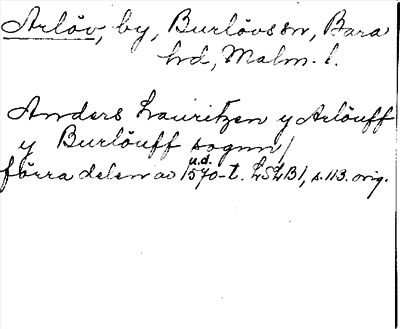 Arlöv, by, Burlövs sn, Bara
hd, Malm. l.
Anders Lauritzen y Arlöuff
y Burlöuff sognn/
u.d.
förra delen av 1570-t. LSLB1, s. 113. orig.